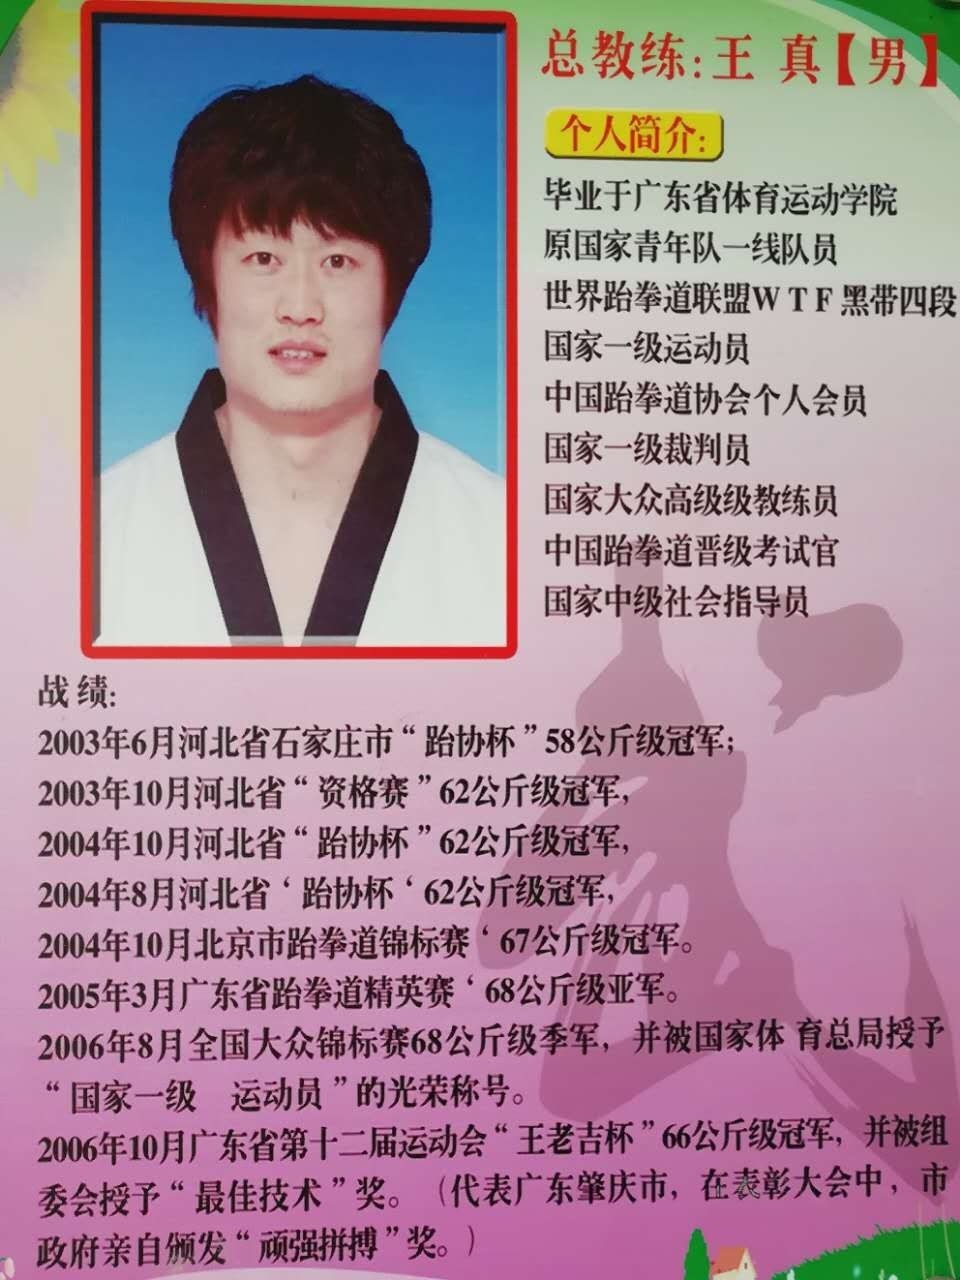 总教练:王 真【男】
个人简介:
毕业于广东省体育运动学院
原国家青年队一线队员
世界跆拳道联盟WTF黑带四段
国家一级运动员
中国跆拳道协会个人会员
国家一级裁判员
国家大众高级级教练员
中国跆拳道晋级考试官
国家中级社会指导员
战绩:
2003年6月河北省石家庄市“跆协杯”58公斤级冠军;
2003年10月河北省“资格赛”62公斤级冠军,
2004年10月河北省“跆协杯”62公斤级冠军,
2004年8月河北省‘跆协杯‘62公斤级冠军,
2004年10月北京市跆拳道锦标赛‘67公斤级冠军。
2005年3月广东省跆拳道精英赛‘68公斤级亚军。
2006年8月全国大众锦标赛68公斤级季军，并被国家体 育总局授予
“国家一级　运动员”的光荣称号。
2006年10月广东省第十二届运动会“王老吉杯”66公斤级冠军，并被组
委会授予“最佳技术”奖。（代表广东肇庆市，在表彰大会中，市
政府亲自颁发“顽强拼搏”奖。）
武